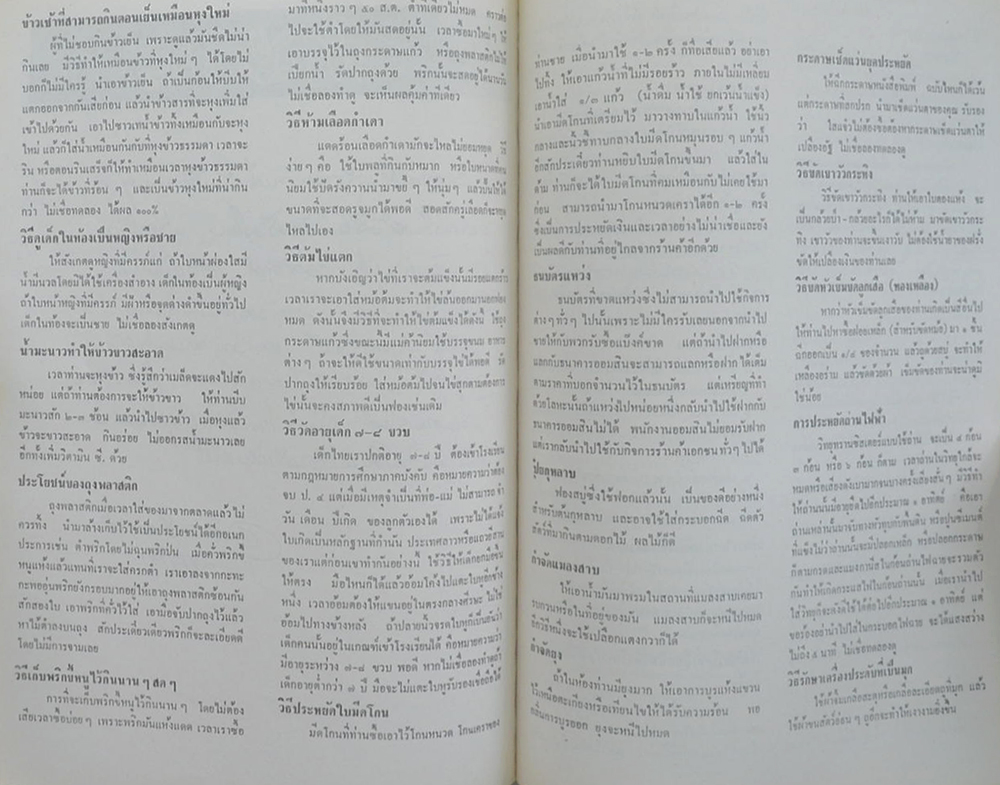 ข้าวเช้าที่สามารถกินตอนเย็นเหมือนหุงใหม่
ผู้ที่ไม่ชอบกินข้าวเย็น เพราะดูแล้วมันชืดไม่น่า
กินเลย มีวิธีทำให้เหมือนข้าวที่หุงใหม่ ๆ ได้โดยไม่
บอกก็ไม่มีใครรู้ นำเอาข้าวเย็น ถ้าเป็นก้อนให้บี้ให้
แตกออกจากกันเสียก่อน แล้วนำข้าวสารที่จะหุงเพิ่มใส่
เข้าไปด้วยกัน เอาไปซาวเทน้ำข้าวทิ้งเหมือนกับจะหุง
ใหม่ แล้วก็ใส่น้ำเหมือนกันกับที่หุงข้าวธรรมดา เวลาจะ
ริน หรือตอนรินเสร็จก็ให้ทำเหมือนเวลาหุงข้าวธรรมดา
ท่านก็จะได้ข้าวที่ร้อน ๆ และเป็นข้าวหุงใหม่ที่น่ากิน
กว่า ไม่เชื่อทดลอง ได้ผล ๑๐๐%
วิธีดูเด็กในท้องเป็นหญิงหรือชาย
ให้สังเกตดูหญิงที่มีครรภ์แก่ ถ้าใบหน้าผ่องใสมี
น้ำมีนวลโดยมิได้ใช้เครื่องสำอาง เด็กในท้องเป็นผู้หญิง
ถ้าใบหน้าหญิงที่มีครรภ์ มีฝ้าหรือจุดด่างดำขึ้นอยู่ทั่วไป
เด็กในท้องจะเป็นชาย ไม่เชื่อลองสังเกตดู
น้ำมะนาวทำให้ข้าวขาวสะอาด
เวลาท่านจะหุงข้าว ซึ่งรู้สึกว่าเมล็ดจะแดงไปสัก
หน่อย แต่ถ้าท่านต้องการจะให้ข้าวขาว ให้ท่านบีบ
มะนาวสัก ๒-๓ ช้อน แล้วนำไปซาวข้าว เมื่อหุงแล้ว
ข้าวจะขาวสะอาด กินอร่อย ไม่ออกรสน้ำมะนาวเลย
อีกทั้งเพิ่มวิตามิน ซี. ด้วย
ประโยชน์ของถุงพลาสติก
ถุงพลาสติกเมื่อเวลาใส่ของมาจากตลาดแล้ว ไม่
ควรทิ้ง นำมาล้างเก็บไว้ใช้เป็นประโยชน์ได้อีกอเนก
ประการเช่น ตำพริกโดยไม่ฉุนพริกป่น เมื่อคั่วพริกขี้
หนูแห้งแล้วแทนที่เราจะใส่ครกตำ เราเอาลงจากกะทะ
กะพออุ่นพริกยังกรอบมากอยู่ให้เอาถุงพลาสติกซ้อนกัน
สักสองใบ เอาพริกที่คั่วไว้ใส่ เอามือจับปากถุงไว้แล้ว
หาไม้ตำลงบนถุง สักประเดี๋ยวเดียวพริกก็จะละเอียดดี
โดยไม่มีการจามเลย
วิธีเก็บพริกขี้หนูไว้กินนาน ๆ สด ๆ
การที่จะเก็บพริกขี้หนูไว้กินนาน ๆ โดยไม่ต้อง
เสียเวลาซื้อบ่อย ๆ เพราะพริกมันแห้งแดด เวลาเราซื้อ
มาทีหนึ่งราว ๆ ๕๐ ส.ต. ตำทีเดียวไม่หมด คราวต่อ
ไปจะใช้ตำโดยให้มันสดอยู่นั้น เวลาซื้อมาใหม่ ๆ ให้
เอาบรรจุไว้ในถุงกระดาษแก้ว หรือถุงพลาสติกไม่ให้
เปียกน้ำ รัดปากถุงด้วย พริกนั้นจะสดอยู่ได้นานวัน
ไม่เชื่อลองทำดู จะเห็นผลคุ้มค่าทีเดียว
วิธีห้ามเลือดกำเดา
แดดร้อนเลือดกำเดามักจะไหลไม่ยอมหยุด วิธี
ง่าย ๆ คือ ใช้ใบพลูที่กินกับหมาก
ขนาดที่จะสอดรูจมูกได้พอดี สอดสักครู่เลือดก็จะหยุด
ไหลไปเอง
วิธีต้มไข่แตก
หากบังเอิญว่าไข่ที่เราจะต้มแข็งนั้นมีรอยแตกร้าว
เวลาเราจะเอาใส่หม้อต้มจะทำให้ไข่ล้นออกมานอกฟอง
หมด ดังนั้นจึงมีวิธีที่จะทำให้ไข่ต้มแข็งได้ดังนี้ ใช้ถุง
กระดาษแก้วซึ่งขณะนี้มีแม่ค้านิยมใช้บรรจุขนม อาหาร
ต่าง ๆ ถ้าจะให้ดีใช้ขนาดเท่ากับบรรจุไข่ได้พอดี รัด
ปากถุงให้เรียบร้อย ใส่หม้อต้มไปจนไข่สุกตามต้องการ
ไข่นั้นจะคงสภาพดีเป็นฟองเช่นเดิม
วิธีวัดอายุเด็ก ๗-๘ ขวบ
เด็กไทยเราปกติอายุ ๗-๘ ปี ต้องเข้าโรงเรียน
ตามกฎหมายการศึกษาภาคบังคับ คือหมายความว่าต้อง
จบ ป. ๔ แต่เมื่อมีเหตุจำเป็นที่พ่อ-แม่ ไม่สามารถ จำ
วัน เดือน ปีเกิด ของลูกตัวเองได้ เพราะไม่ได้แจ้ง
ใบเกิดเป็นหลักฐานที่กำนัน
ของเราแต่ก่อนเขาทำกันอย่างนี้ ใช้วิธีให้เด็กยกมือขึ้น
ให้ตรง มือไหนก็ได้แล้วอ้อมโค้งไปแตะใบหูอีกข้าง
หนึ่ง เวลาอ้อมต้องให้แขนอยู่ในตรงกลางศีรษะ ไม่ใช่
อ้อมไปทางข้างหลัง
เด็กคนนั้นอยู่ในเกณฑ์เข้าโรงเรียนได้ คือหมายความว่า
มีอายุระหว่าง ๗-๘ ขวบ พอดี หากไม่เชื่อลองทำดูถ้า
เด็กอายุต่ำกว่า ๗ ปี มือจะไม่แตะใบหู
วิธีประหยัดใบมีดโกน
มีดโกนที่ท่านซื้อเอาไว้โกนหนวด โกนเคราของ
ท่านชาย เมื่อนำมาใช้ ๑-๒ ครั้ง ก็ทื่อเสียแล้ว อย่าเอา
ไปทิ้ง ให้เอาแก้วน้ำที่ไม่มีรอยร้าว ภายในไม่มีเหลี่ยม
เอาน้ำใส่ ๑/๓ แก้ว (น้ำดื่ม น้ำใช้ ยกเว้นน้ำแข็ง)
นำเอามีดโกนที่เตรียมไว้ มาวางทาบในแก้วน้ำ ใช้นิ้ว
กลางและนิ้วชี้ทาบกลางใบมีดโกนหมุนรอบ ๆ แก้วน้ำ
อีกสักประเดี๋ยวท่านหยิบใบมีดโกนขึ้นมา แล้วใส่ใน
ด้าม ท่านก็จะได้ใบมีดโกนที่คมเหมือนกับไม่เคยใช้มา
ก่อน สามารถนำมาโกนหนวดเคราได้อีก ๑-๒ ครั้ง
ซึ่งเป็นการประหยัดเงินและเวลาอย่างไม่น่าเชื่อและยัง
เป็นผลดีกับท่านที่อยู่ไกลจากร้านค้าอีกด้วย
ธนบัตรแหว่ง
ธนบัตรที่ขาดแหว่งซึ่งไม่สามารถนำไปใช้กิจการ
ต่างๆทั่ว ๆ ไปนั้นเพราะไม่มีใครรับเลยนอกจากนำไป
ขายให้กับพวกรับซื้อแบ๊งค์ขาด แต่ถ้านำไปฝากหรือ
แลกกับธนาคารออมสินจะสามารถแลกหรือฝาก ได้เต็ม
ตามราคาที่บอกจำนวนไว้ในธนบัตร แต่เหรียญที่ทำ
ด้วยโลหะนั้นถ้าแหว่งไปหน่อยหนึ่งกลับนำไปใช้ฝากกับ
ธนาคารออมสินไม่ได้ พนักงานออมสินไม่ยอมรับฝาก
แต่เรากลับนำไปใช้กับกิจการร้านค้าเอกชน ทั่วๆ ไปได้
ปุ๋ยกุหลาบ
ฟองสบู่ซึ่งใช้ฟอกแล้วนั้น เป็นของดีอย่างหนึ่ง
สำหรับต้นกุหลาบ และอาจใช้ใส่กระบอกฉีด ฉีดตัว
สัตว์ที่มากินตามดอกไม้ ผลไม้ก็ดี
กำจัดแมลงสาบ
ให้เอาน้ำมันมาพรมในสถานที่แมลงสาบเคยมา
รบกวนหรือในที่อยู่ของมัน แมลงสาบก็จะหนีไปหมด
อีกวิธีหนึ่งจะใช้เปลือกแตงกวาก็ได้
กำจัดยุง
ถ้าในห้องท่านมียุงมาก ให้เอาการบูรแห้งแขวน
ไว้เหนือตะเกียงหรือเทียนไขให้ได้รับความร้อน พอ
กลิ่นการบูรออก ยุงจะหนีไปหมด
กระดาษเช็ดแว่นยุดประหยัด
ให้ฉีกกระดาษหนังสือพิมพ์ ฉบับไหนก็ได้เว้น
แต่กระดาษที่สกปรก นำมาเช็ดแว่นตาของคุณ รับรอง
ว่า ใสแจ๋วไม่ต้องซื้อต้องหากระดาษเช็ดแว่นตาให้
เปลืองอัฐ ไม่เชื่อลองทดลองดู
วิธีขัดเขาวัวกระทิง
วิธีขัดเขาวัวกระทิง ท่านใช้เอาใบตองแห้ง จะ
เป็นกล้วยป่า-กล้วยอะไรก็ได้ไม่ห้าม มาขัดเขาวัวกระ
ทิง เขาวัวของท่านจะขึ้นเงาวับ ไม่ต้องใช้น้ำยาของฝรั่ง
ขัดให้เปลืองเงินของท่านเลย
วิธีขัดหัวเข็มขัดลูกเสือ (ทองเหลือง)
หากว่าหัวเข็มขัดลูกเสือของท่านเกิดเป็นสีอื่นไป
ให้ท่านไปหาซื้อฝอยเหล็ก (สำหรับขัดหม้อ) มา ๑ ชิ้น
ฉีกออกเป็น ๑/๔ ของจำนวน แล้วถูด้วยสบู่ จะทำให้
เหลืองอร่าม แล้วขัดด้วยผ้า เข็มขัดของท่านจะน่าดูมิ
ใช่น้อย
การประหยัดถ่านไฟฟ้า
วิทยุทรานซิสเตอร์แบบใช้ถ่าน จะเป็น ๔ ก้อน
๓ ก้อน หรือ ๖ ก้อน ก็ตาม เวลาถ่านในวิทยุใกล้จะ
ไม่ถึง ๕ นาที ไม่เชื่อทดลองดู
วิธีรักษาเครื่องประดับที่เป็นมุก